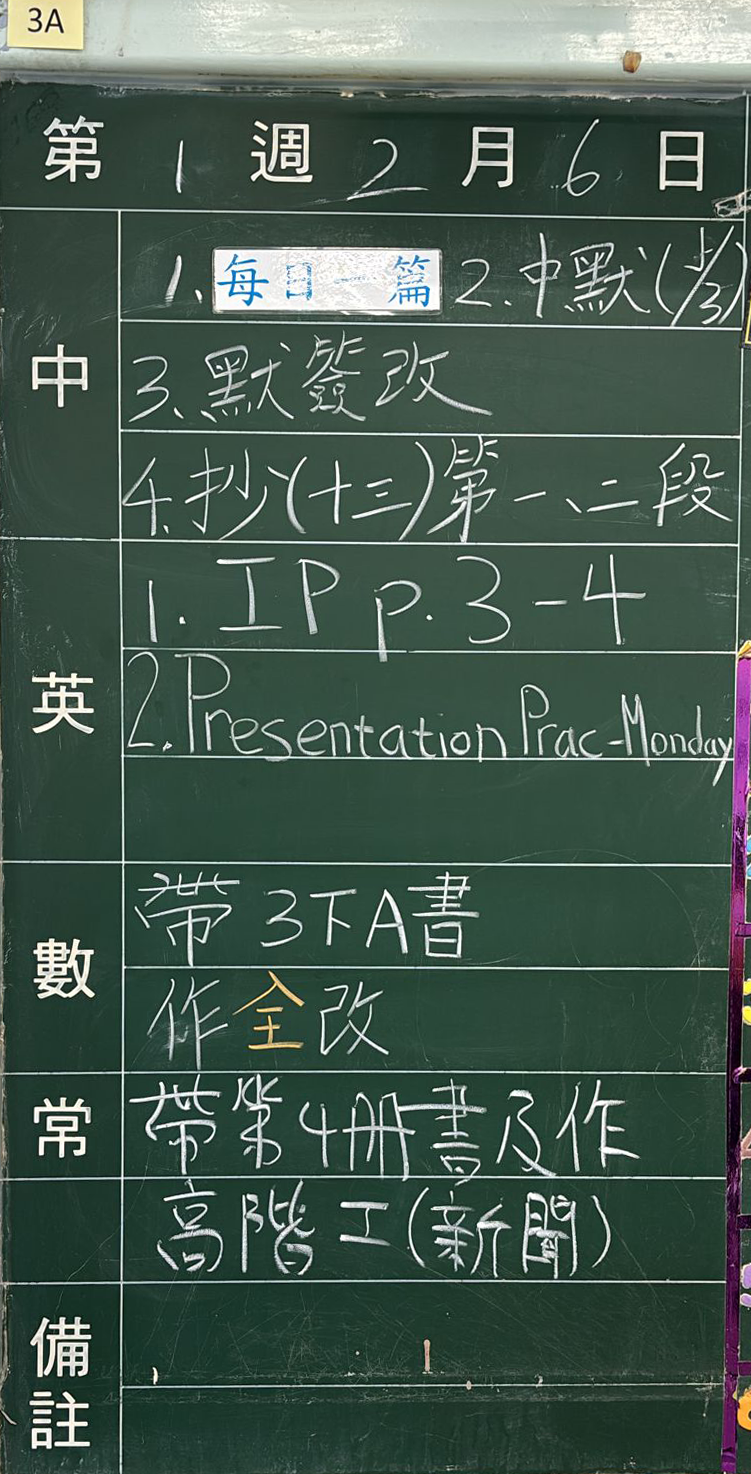 3A
第 1 週 2 月 6 日
中
1. 每日一篇 2. 中默(上/3)
3. 默簽改
4. 抄(十三)第一、二段
英
1. IP p. 3-4
2. Presentation Prac-Monday
數
帶3下A書
作全改
常
帶第4冊書及作
高階工(新聞)
備註